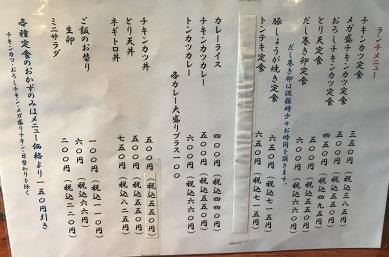 ランチメニュー
チキンカツ定食 三五〇円(税込三八五円)
メガ盛チキンカツ定食
おろしチキンカツ定食 四五〇円(税込四九五円)
とり天定食
だし巻き卵定食
だし巻き卵は混雑時少々お時間を頂きます。
豚しょうが焼き定食 六五〇円(税込七一五円)
トンテキ定食 六五〇円(税込七一五円)
カレーライス 四〇〇円(税込四四〇円)
チキンカツカレー 五〇〇円(税込五五〇円)
トンカツカレー 六〇〇円(税込六六〇円)
各カレー大盛りプラス一〇〇
チキンカツ丼 五〇〇円(税込五五〇円)
とり天丼 五〇〇円(税込五五〇円)
ネギトロ丼 七五〇円(税込八二五円)
ご飯のお替り 一〇〇円(税込一一〇円)
生卵 六〇円(税込六六円)
ミニサラダ 二〇〇円(税込二二〇円)
各種定食のおかずのみはメニュー価格より一五〇円引き
チキンカツ・おろしチキンカツ・メガ盛りチキン・日替わりを除く